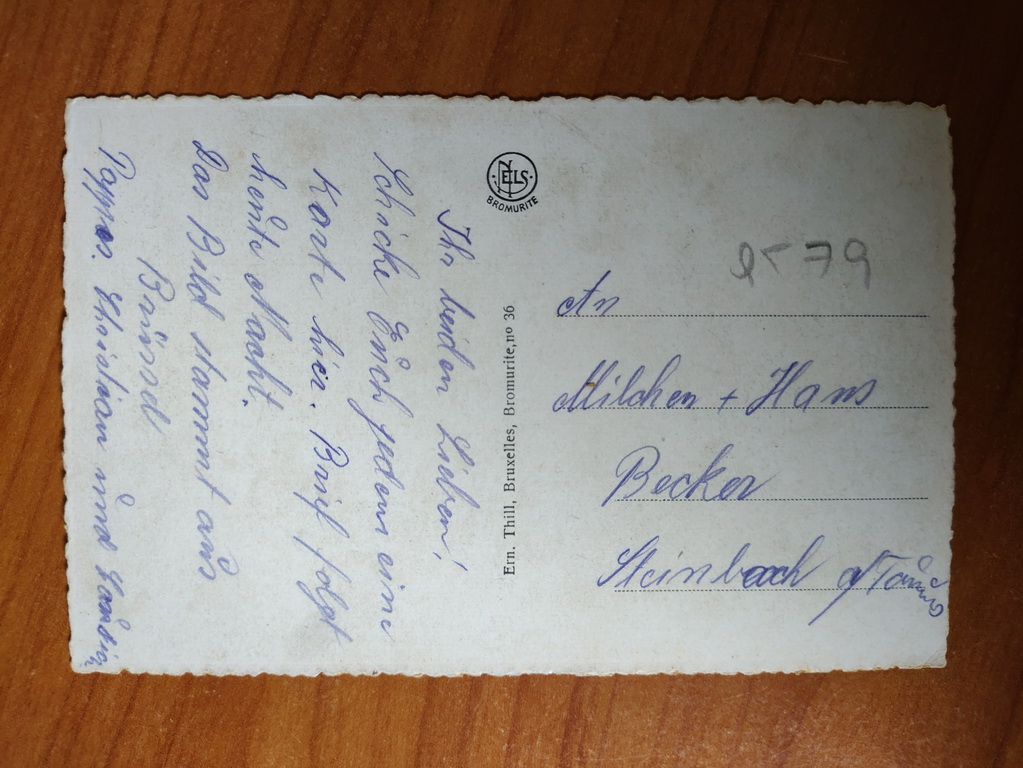 Ihr beiden Lieben!
Schicke Euch jedem eine
Karte hier. Brief folgt
heute Nacht.
Das Bild stammt aus
Brüssel
Christian und
NELS
BROMURITE
Ern. Thill, Bruxelles, Bromurite, nº 36
An
Milchen + Hans
Becker
Steinbach a/Taunus